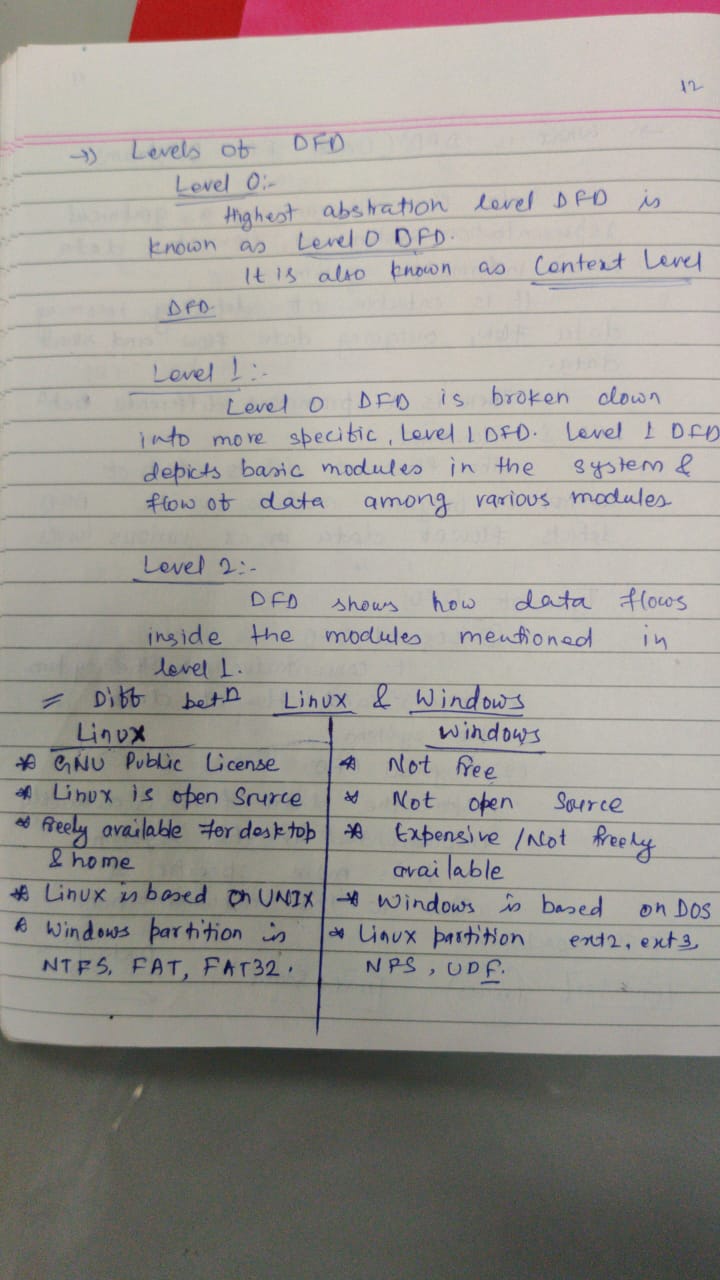 12
→) Levels of DFD
Level 0:-
Highest abstration level DFD is
known as Level 0 DFD.
It is also known as Context Level
DFD.
Level 1:-
Level 0 DFD is broken down
into more specific, Level 1 DFD. Level 1 DFD
depicts basic modules in the system &
flow of data among various modules
Level 2:-
DFD shows how data flows
inside the modules mentioned in
level 1.
= Diff betn Linux & Windows
Linux | Windows
* GNU Public License | * Not free
* Linux is open Srurce | * Not open Source
* freely available for desktop | * Expensive / Not freely
& home | available
* Linux is based on UNIX | * Windows is based on DOS
* Windows partition is | * Linux partition ext2, ext3,
NTFS, FAT, FAT32. | NFS, UDF.